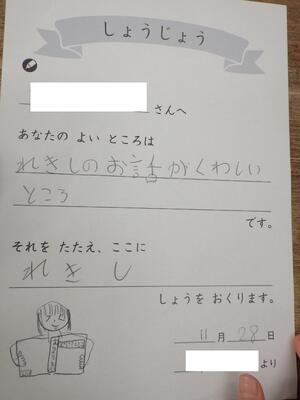 しょうじょう
さんへ
あなたの よい ところは
れきしのお話がくわしい
ところ
です。
それを たたえ、ここに
れきし
しょうを おくります。
11月28日
より